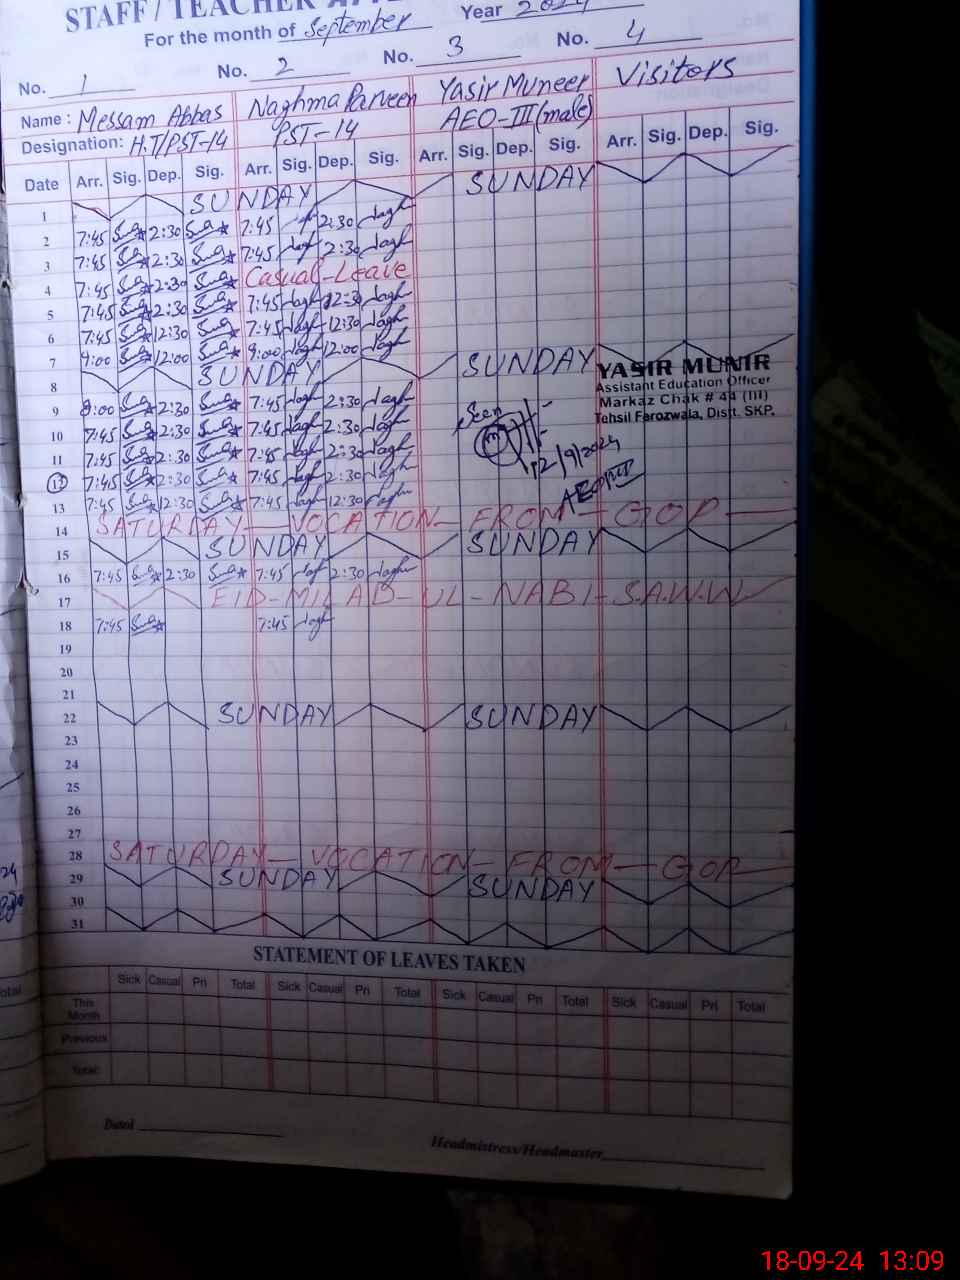 STAFF / TEACHER
For the month of September Year 2024
No. 1 No. 2 No. 3 No. 4
Name : Messam Abbas Naghma Parveen Yasir Muneer Visitors
Designation: H.T/PST-14 PST-14 AEO-III (male)
Date Arr. Sig. Dep. Sig. Arr. Sig. Dep. Sig. Arr. Sig. Dep. Sig. Arr. Sig. Dep. Sig.
1 SUNDAY SUNDAY
2 7:45 2:30 7:45 2:30
3 7:45 2:30 7:45 2:30
4 7:45 2:30 Casual-Leave
5 7:45 2:30 7:45 12:30
6 7:45 12:30 7:45 12:30
7 9:00 12:00 9:00 12:00
8 SUNDAY SUNDAY
YASIR MUNIR
Assistant Education Officer
Markaz Chak # 44 (III)
Tehsil Farozwala, Distt. SKP.
9 8:00 2:30 7:45 2:30
10 7:45 2:30 7:45 2:30 Seen
11 7:45 2:30 7:45 2:30
12 7:45 2:30 7:45 2:30 12/9/2024
13 7:45 12:30 7:45 12:30 AEO
14 SATURDAY — VOCATION — FROM — GOP —
15 SUNDAY SUNDAY
16 7:45 2:30 7:45 2:30
17 EID-MILAD-UL-NABI-S.A.W.W
18 7:45 7:45
19
20
21
22 SUNDAY SUNDAY
23
24
25
26
27
28 SATURDAY — VOCATION — FROM — GOP —
29 SUNDAY SUNDAY
30
31
STATEMENT OF LEAVES TAKEN
Sick Casual Pri Total Sick Casual Pri Total Sick Casual Pri Total Sick Casual Pri Total
This Month
Previous
Total:
Dated
Headmistress/Headmaster
18-09-24 13:09